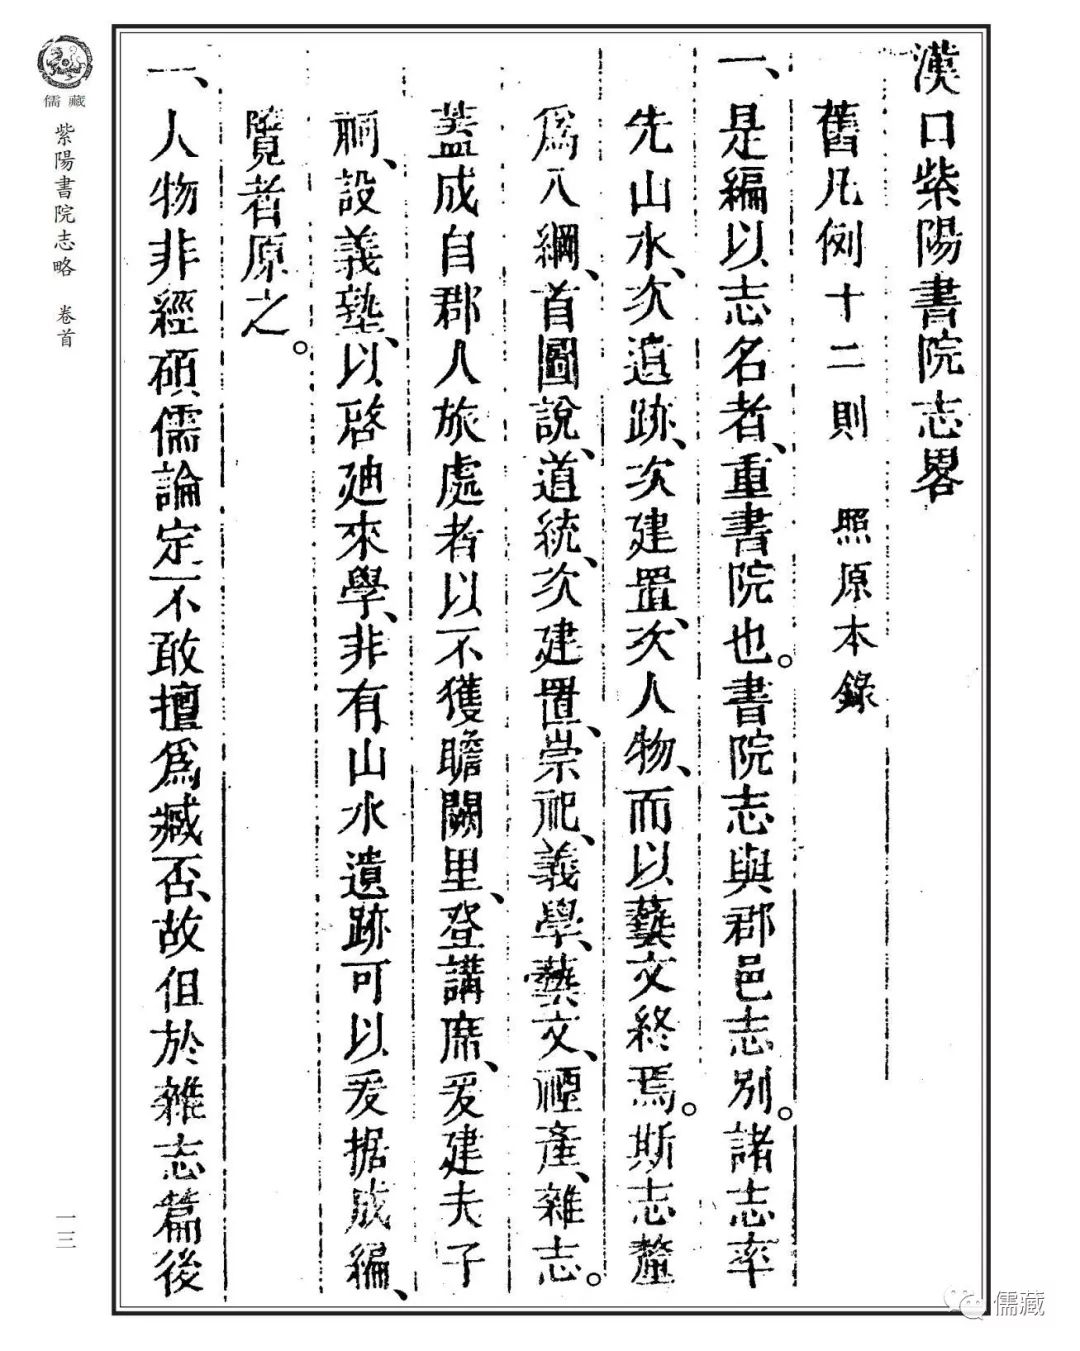 漢口紫陽書院志畧
舊凡例十二則　照原本錄
一、是編以志名者、重書院也。書院志與郡邑志別。諸志率
先山水、次遺跡、次建置、次人物、而以藝文終焉。斯志釐
爲八綱、首圖說、道統、次建置、崇祀、義學、藝文、禋產、雜志。
蓋成自郡人旅處者以不獲瞻闕里、登講席、爰建夫子
祠、設義塾、以啓廸來學、非有山水遺跡可以爰据成編、
覽者原之。
一、人物非經碩儒論定、不敢擅爲臧否、故但於雜志篇後
儒藏
紫陽書院志略　卷首
一三
儒藏